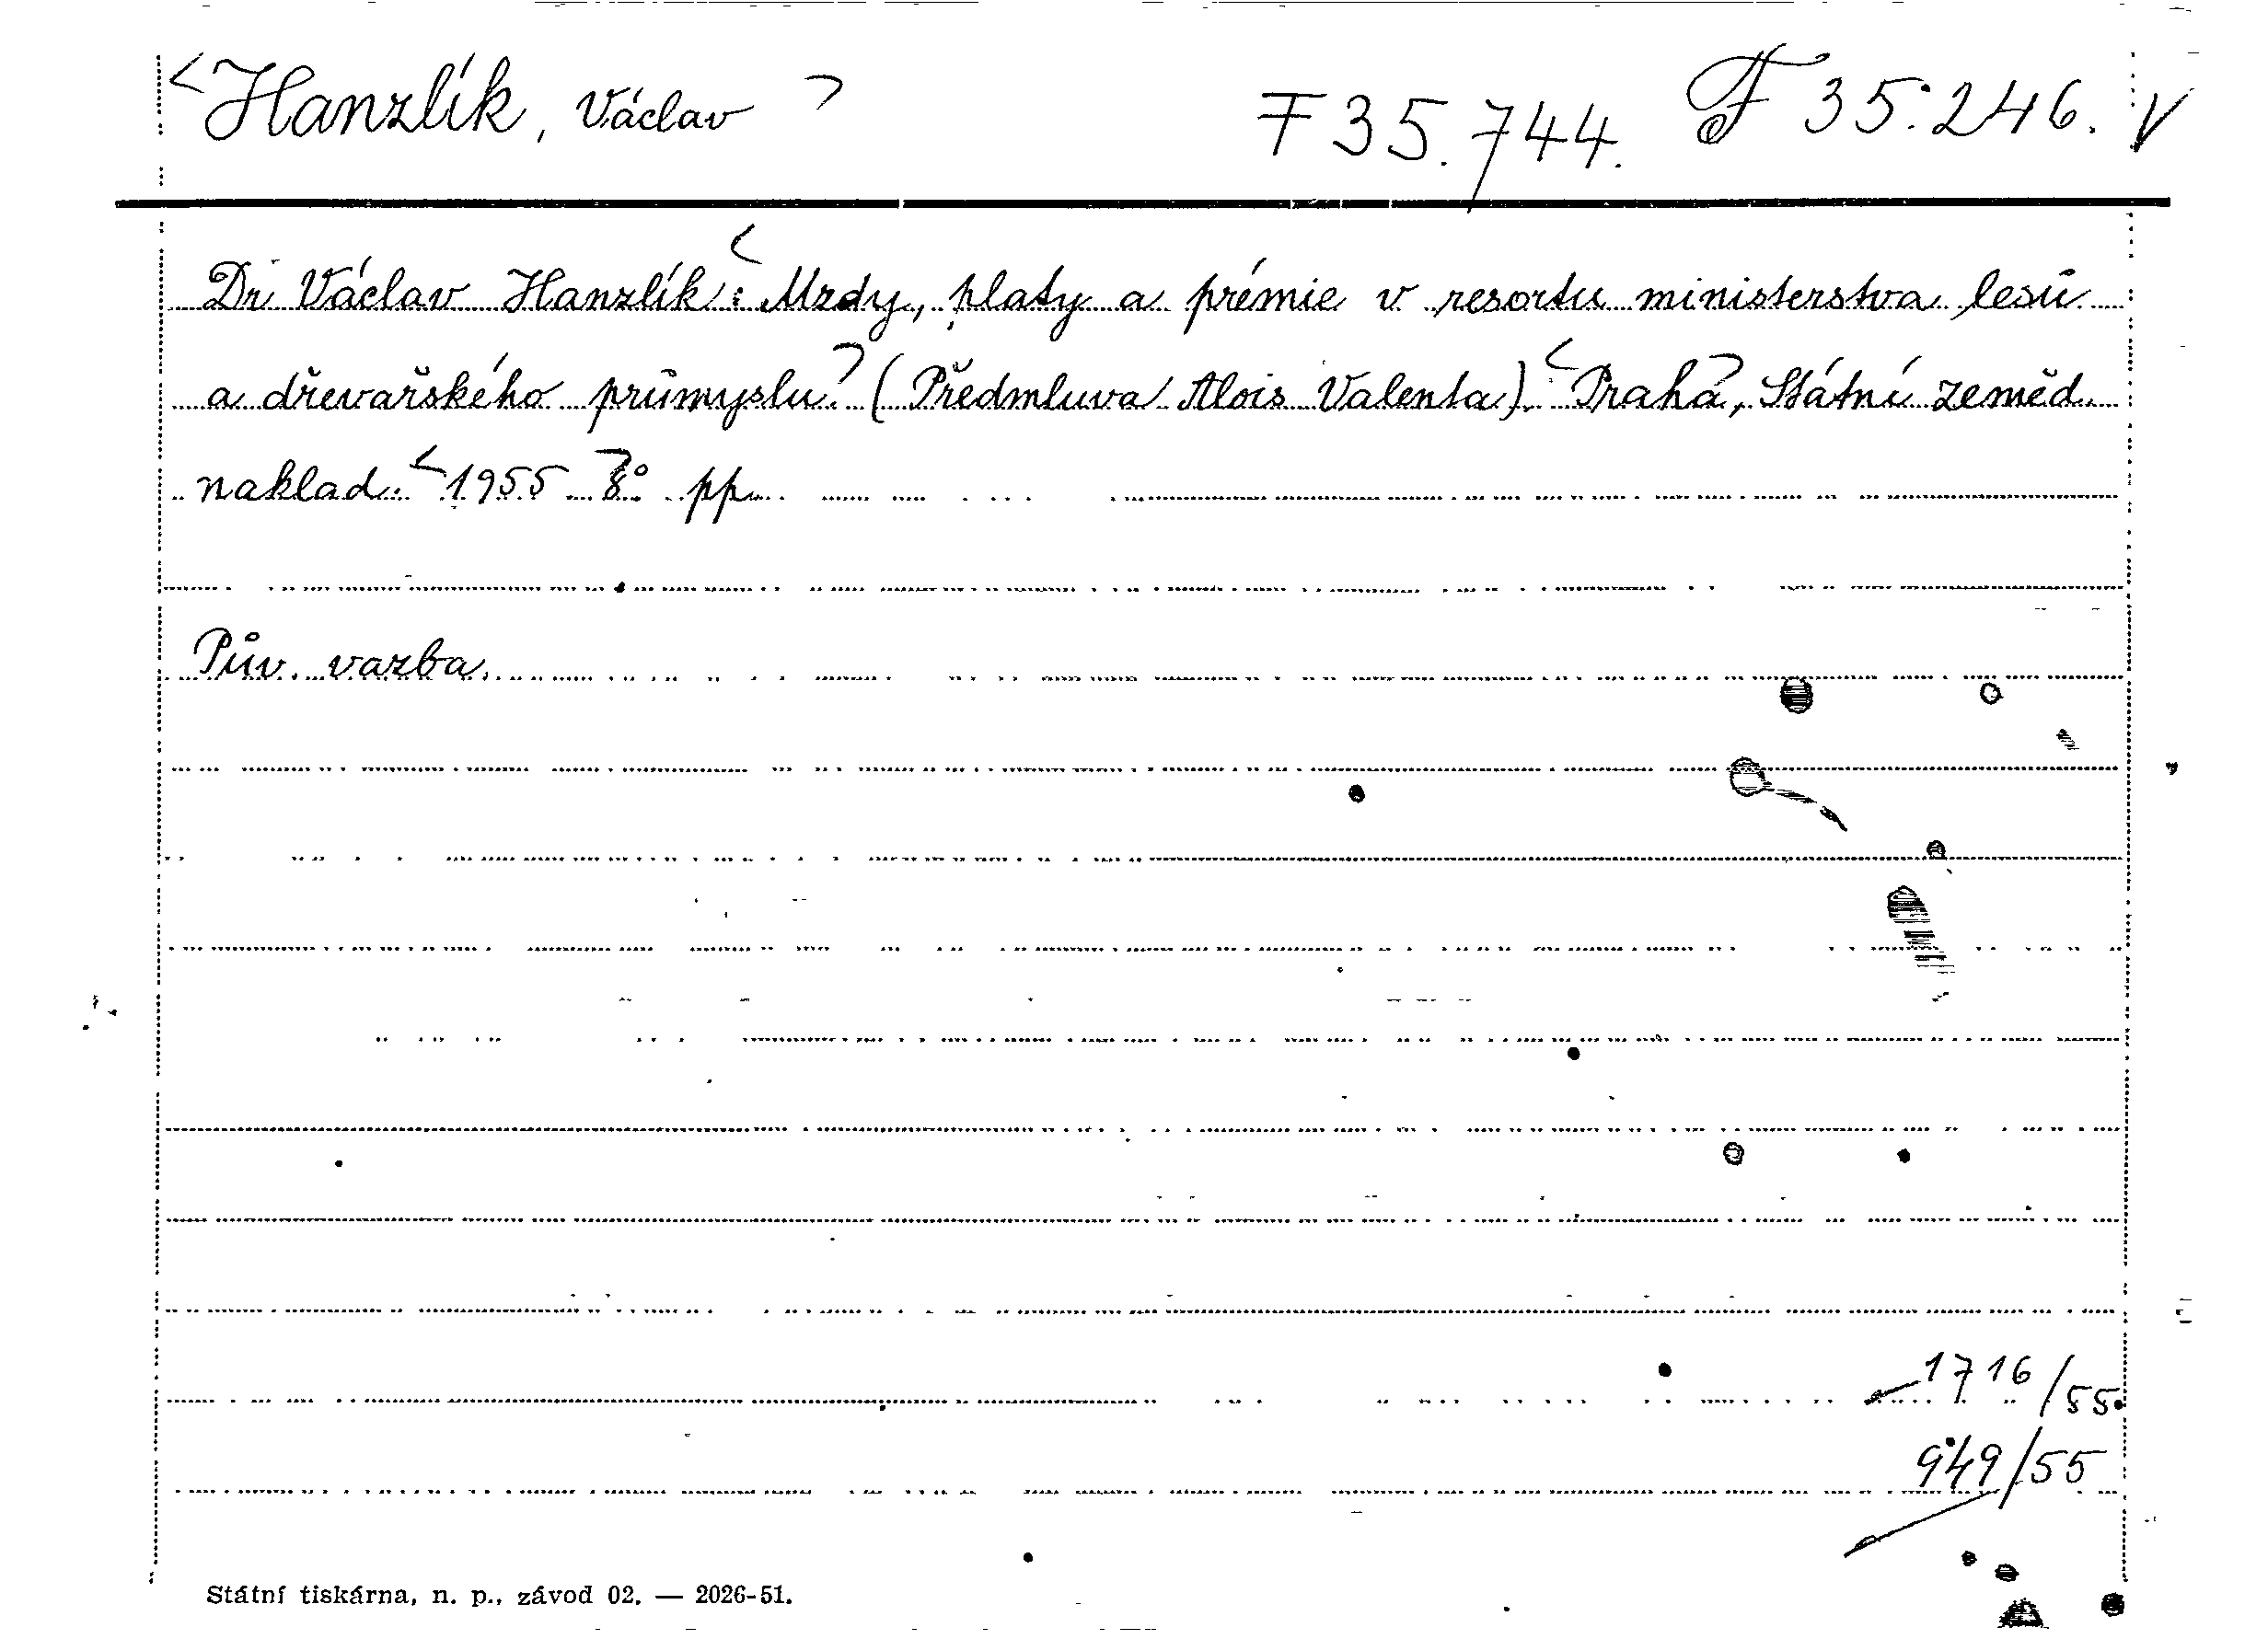 Hanzlík, Václav F 35.744. F 35.246. V
Dr Václav Hanzlík: Mzdy, platy a prémie v resortu ministerstva lesů
a dřevařského průmyslu. (Předmluva Alois Valenta). Praha, Státní zeměd.
naklad. 1955 8° pp.
Pův. vazba.
1716/55.
949/55
Státní tiskárna, n. p., závod 02. — 2026-51.